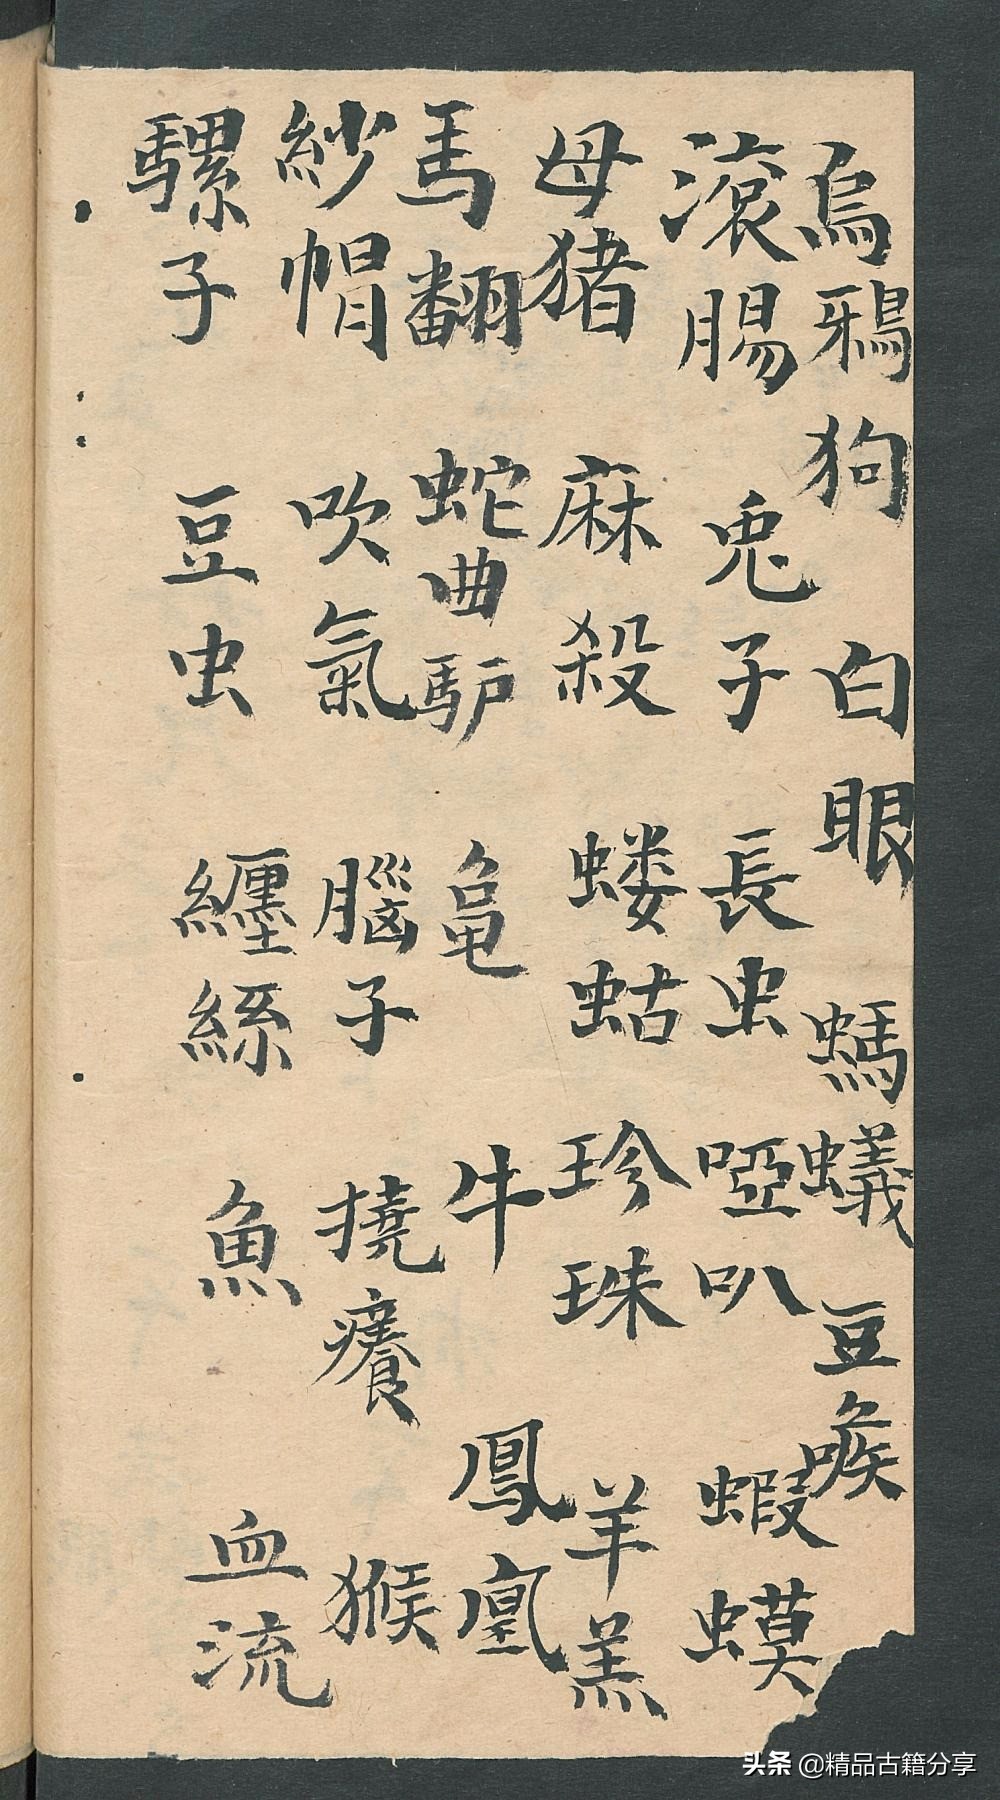 烏鴉狗 白眼 螞蟻 豆喉
滾腸 兎子 長虫 啞叭 蝦蟆
母猪 麻殺 蝼蛄 珍珠 羊羔
馬翻 蛇曲驴 龟 牛 鳳凰
紗帽 吹氣 腦子 撓癢 猴
騾子 豆虫 纏絲 魚 血流
头条 @精品古籍分享